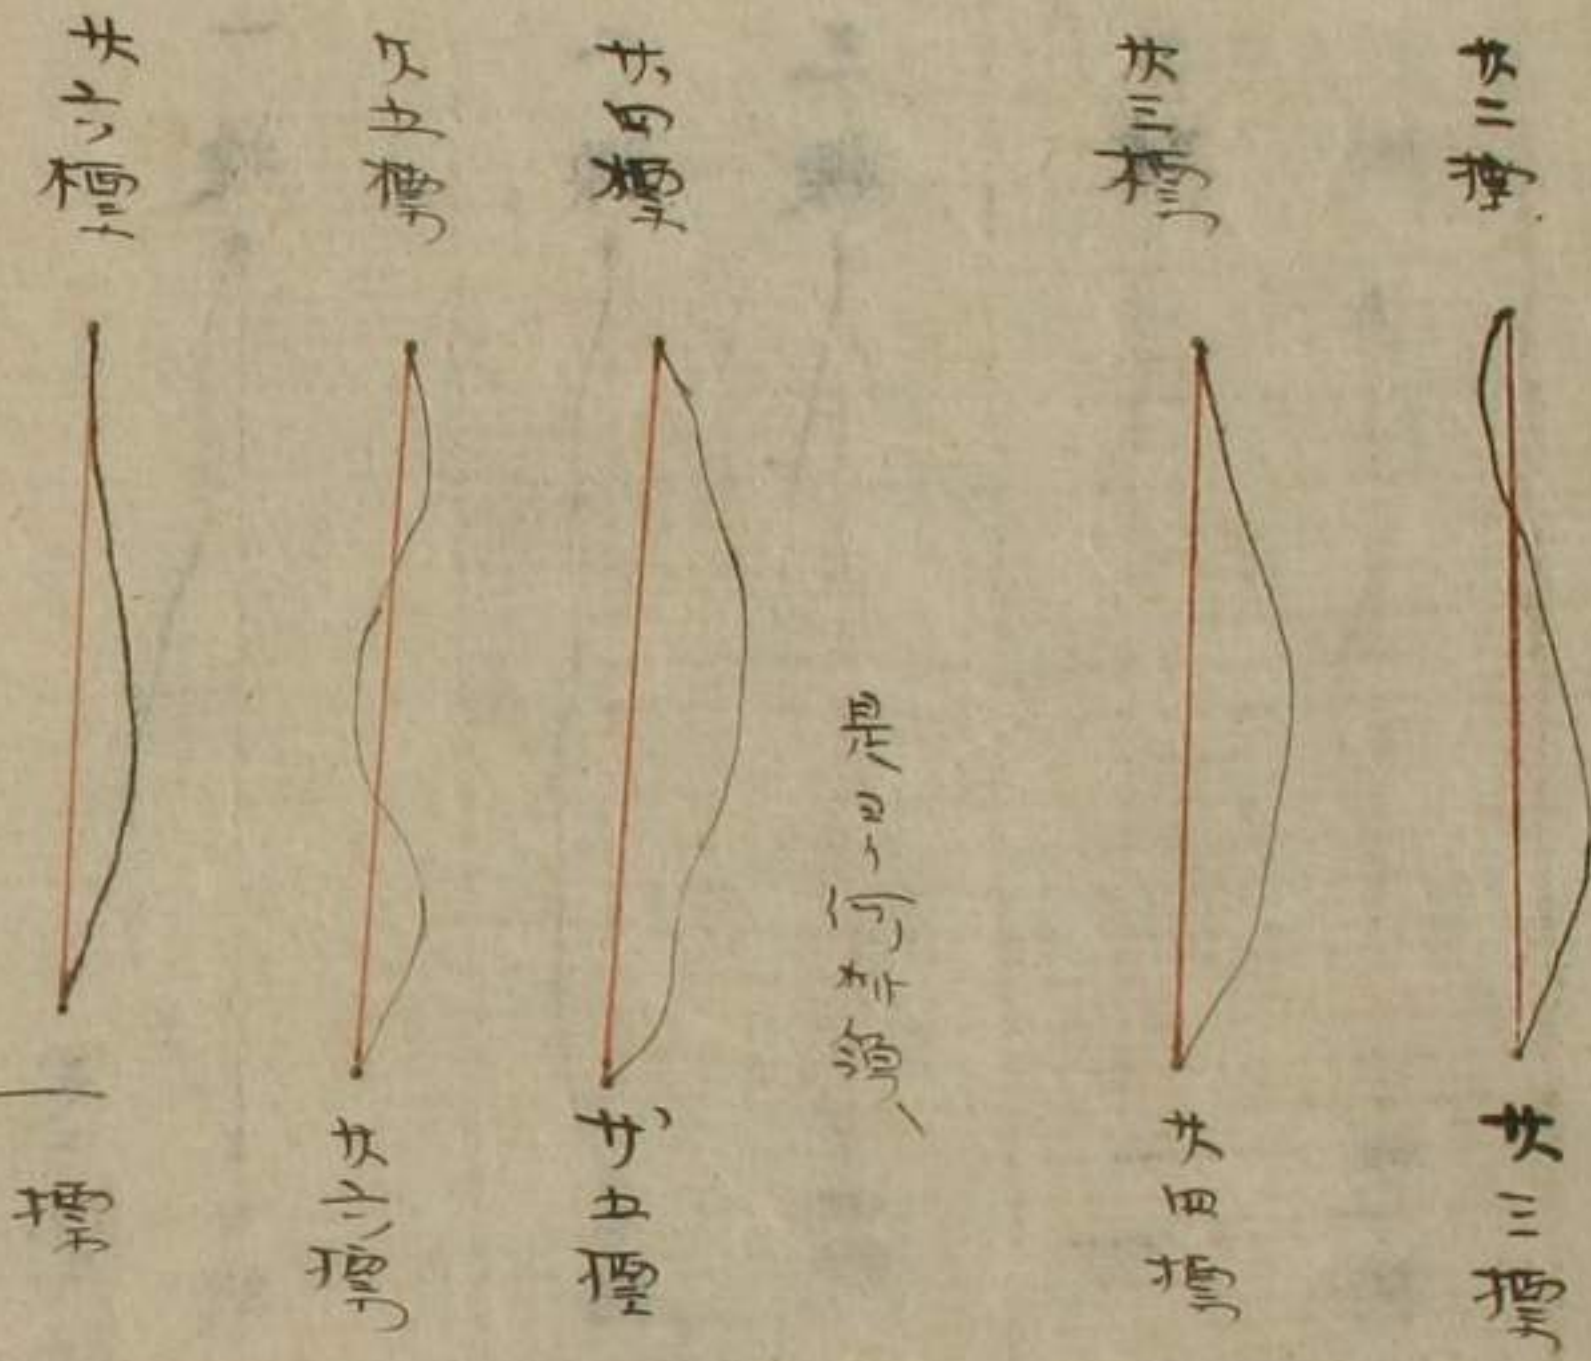 廿二標
廿三標
廿三標
廿四標
是ヨリ何村領
廿四標
廿五標
廿五標
廿六標
廿六標
一標